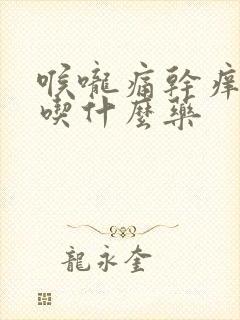 喉嚨痛幹癢
喫什麼藥
龍永奎